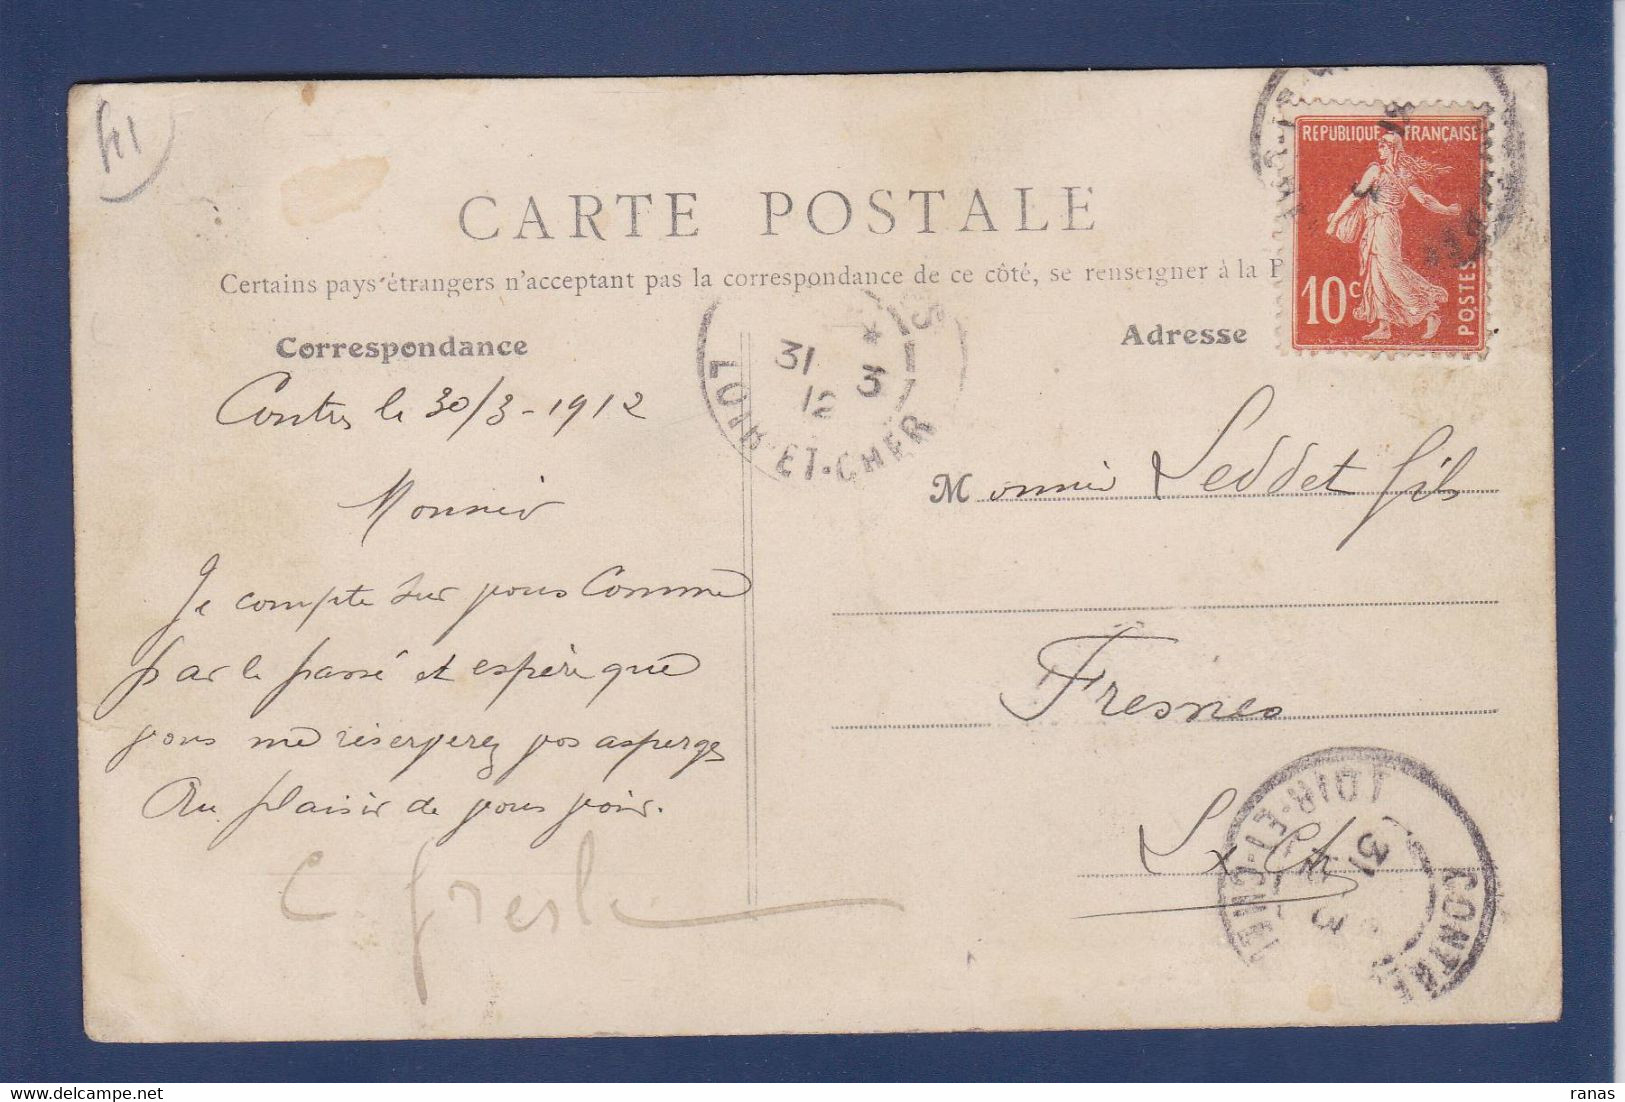 41
CARTE POSTALE
Certains pays étrangers n'acceptant pas la correspondance de ce côté, se renseigner à la P
Correspondance
Contres le 30/3-1912
Monsieur
Je compte sur vous Comme
par le passé et espère que
vous me réserverez vos asperges
Au plaisir de vous voir.
LOIR-ET-CHER
31 3
12
Adresse
REPUBLIQUE FRANÇAISE
10c
POSTES
Monsieur Leddet fils
Fresnes
L x Ch
CONTRES
LOIR-ET-CHER
31 3
ranas